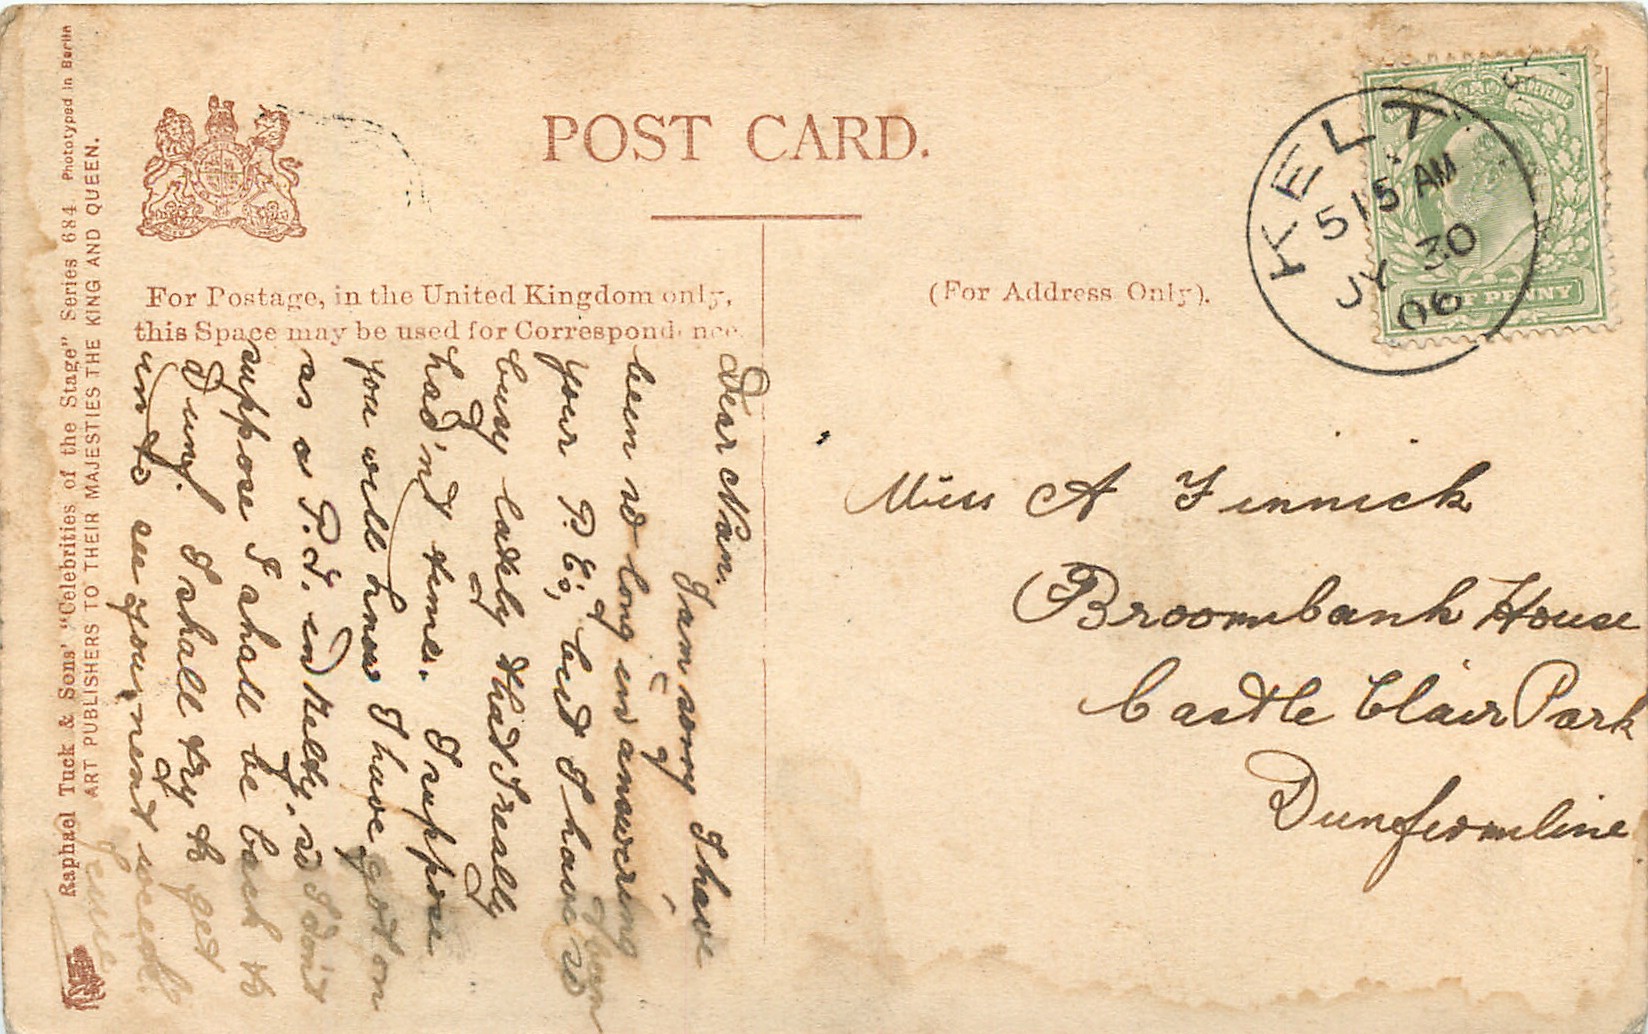 POST CARD.
For Postage, in the United Kingdom only,
this Space may be used for Correspondence.
(For Address Only).
KELTY
515 AM
JY 30
06
REVENUE
HALF PENNY
Miss A Finnick
Broombank House
Castle Clair Park
Dunfermline
Dear Nan.
I am sorry I have
been so long in answering
your P.C; but I have been so
busy lately that I really
had'nt time. I suppose
you will know I have got on
as a P.T. in Kelty, so I don't
suppose I shall be back to
Dunf. I shall try to get
in to see you next week.
Jennie
Raphael Tuck & Sons' "Celebrities of the Stage" Series 684 Photographed in Berlin
ART PUBLISHERS TO THEIR MAJESTIES THE KING AND QUEEN.